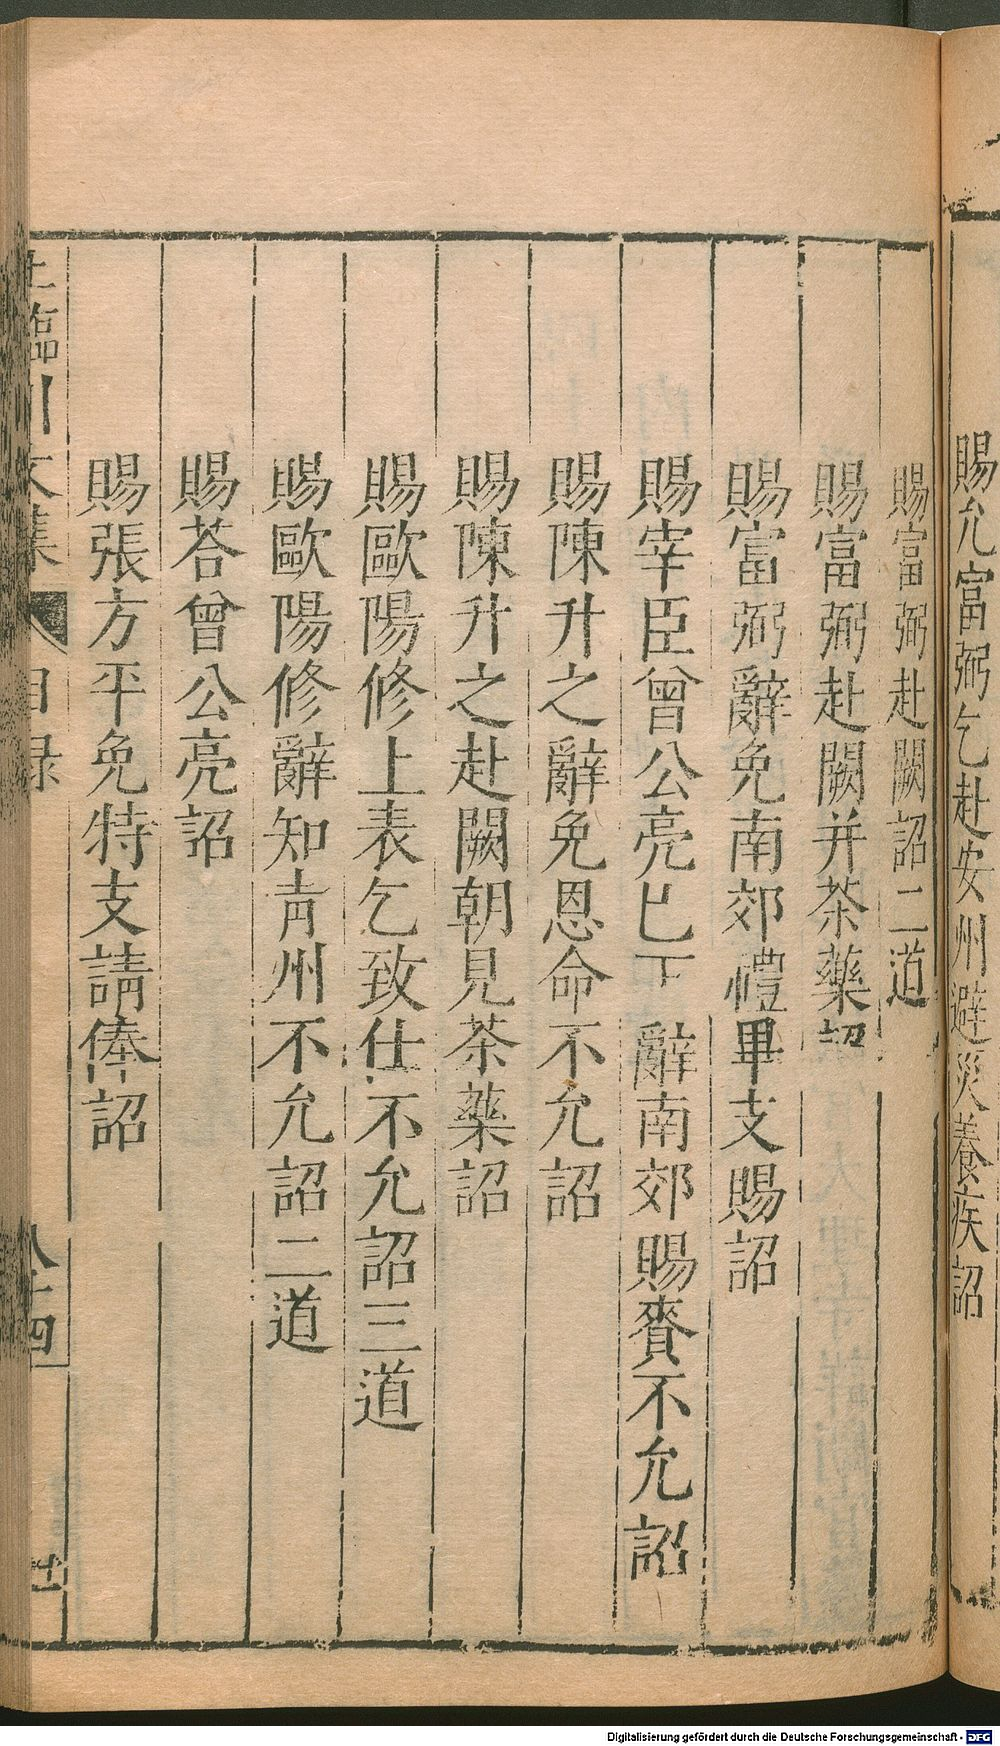 賜允富弼乞赴安州避災養疾詔
賜富弼赴闕詔二道
賜富弼赴闕并茶藥詔
賜富弼辭免南郊禮畢支賜詔
賜宰臣曾公亮已下辭南郊賜賚不允詔
賜陳升之辭免恩命不允詔
賜陳升之赴闕朝見茶藥詔
賜歐陽修上表乞致仕不允詔三道
賜歐陽修辭知青州不允詔二道
賜荅曾公亮詔
賜張方平免特支請俸詔
臨川文集 目録
Digitalisierung gefördert durch die Deutsche Forschungsgemeinschaft - DFG